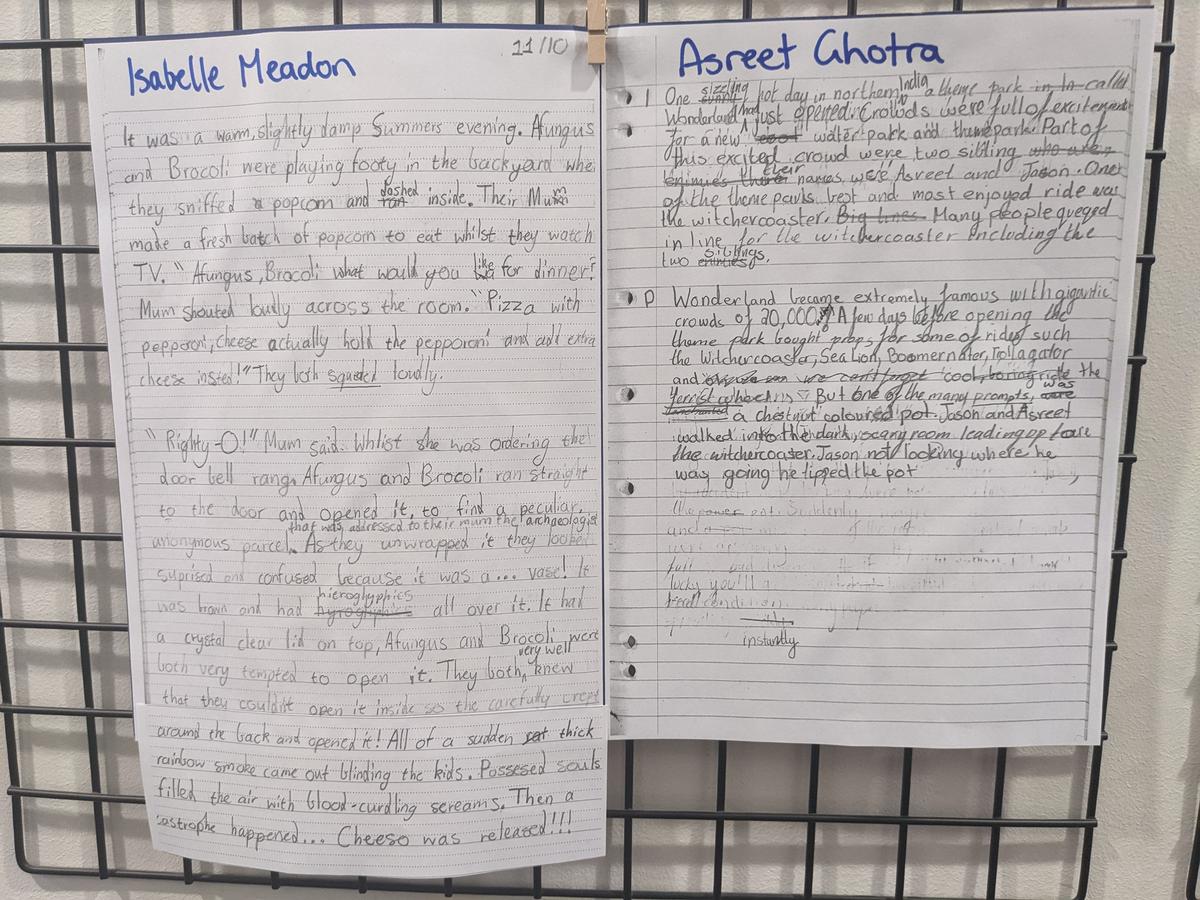 Isabelle Meadon
11/10
It was a warm, slightly damp Summers evening. Afungus
and Brocoli were playing footy in the backyard whe
they sniffed a popcorn and dashed inside. Their Mum
made a fresh batch of popcorn to eat whilst they watch
TV. " Afungus, Brocoli what would you like for dinner?
Mum shouted loudly across the room. "Pizza with
pepperoni, cheese actually hold the pepporoni and add extra
cheese insted!" They both squeled loudly.
"Righty-O!" Mum said. Whilst she was ordering the
door bell rang, Afungus and Brocoli ran straight
to the door and opened it, to find a peculiar,
that was, addressed to their mum the archaeologist
anonymous parcel. As they unwrapped it they looked
suprised and confused because it was a... vase! It
hieroglyphics
was brown and had hyroglyphics all over it. It had
a crystal clear lid on top, Afungus and Brocoli were
very well
both very tempted to open it. They both, knew
that they couldn't open it inside so the carefully crept
around the back and opened it! All of a sudden thick
rainbow smoke came out blinding the kids. Possesed souls
filled the air with blood-curdling screams. Then a
castrophe happened... Cheeso was released!!!
Asreet Ghotra
1 One sizzling hot day in northern India a theme park in called
Wonderland had just opened. Crowds were full of excitement
for a new water park and themepark. Part of
this excited crowd were two sibling who are
enimies their names were Asreet and Jason. One
of the theme parks best and most enjoyed ride was
the witchercoaster. Big lines. Many people queued
in line for the witchercoaster including the
two siblings.
P Wonderland became extremely famous with gigantic
crowds of 20,000. A few days before opening the
theme park bought props for some of rides such
the Witchercoaster, Sea Lion, Boomernater,
and cool, boring ride the
But one of the many prompts, was
a chestnut coloured pot. Jason and Asreet
walked into the dark, scary room leading up to
the witchercoaster. Jason not looking where he
was going he tipped the pot
instantly